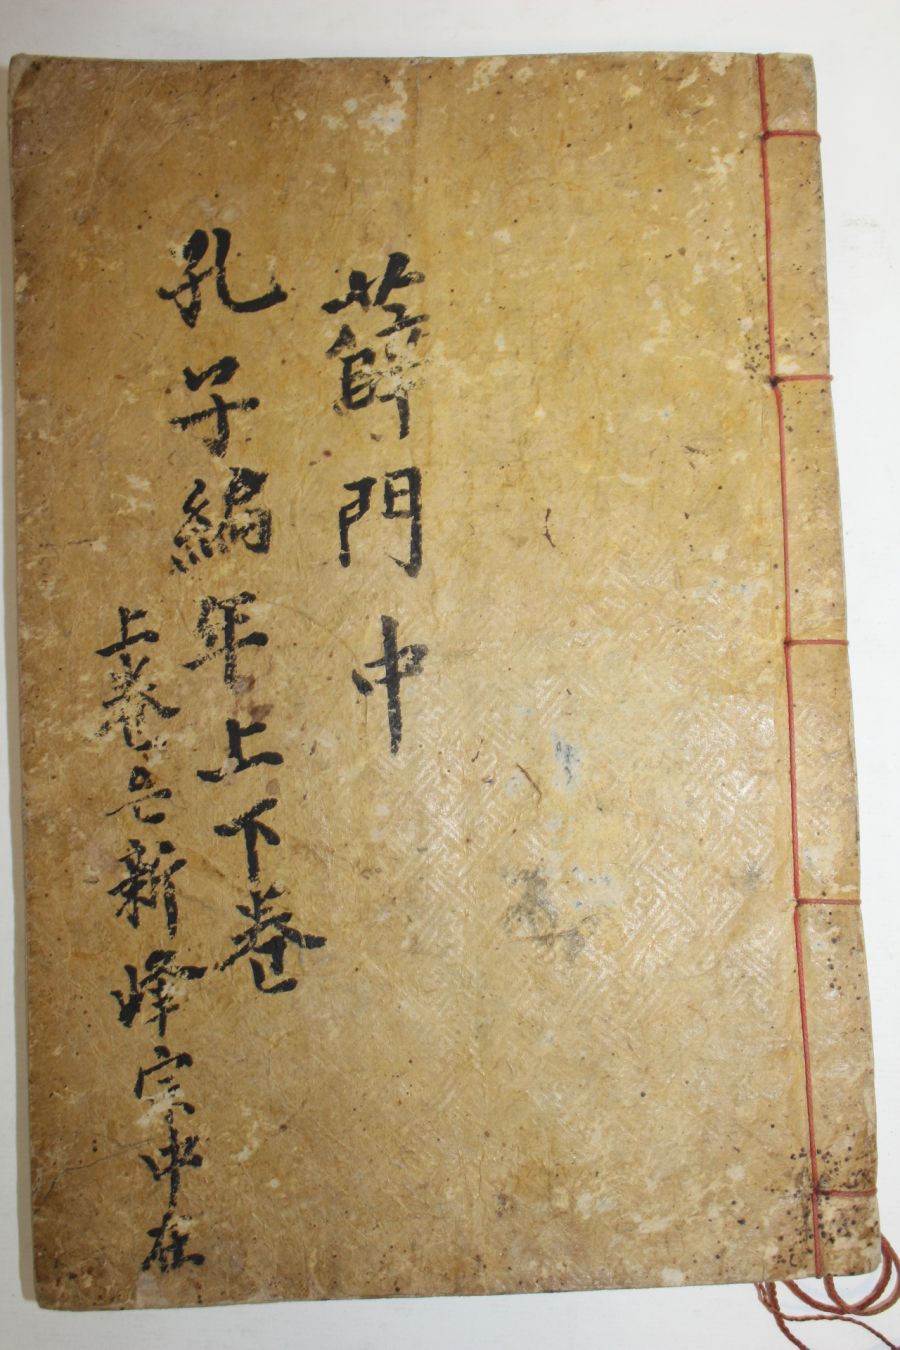 薛門中
孔子編年上下卷
上卷은新峰宗中在